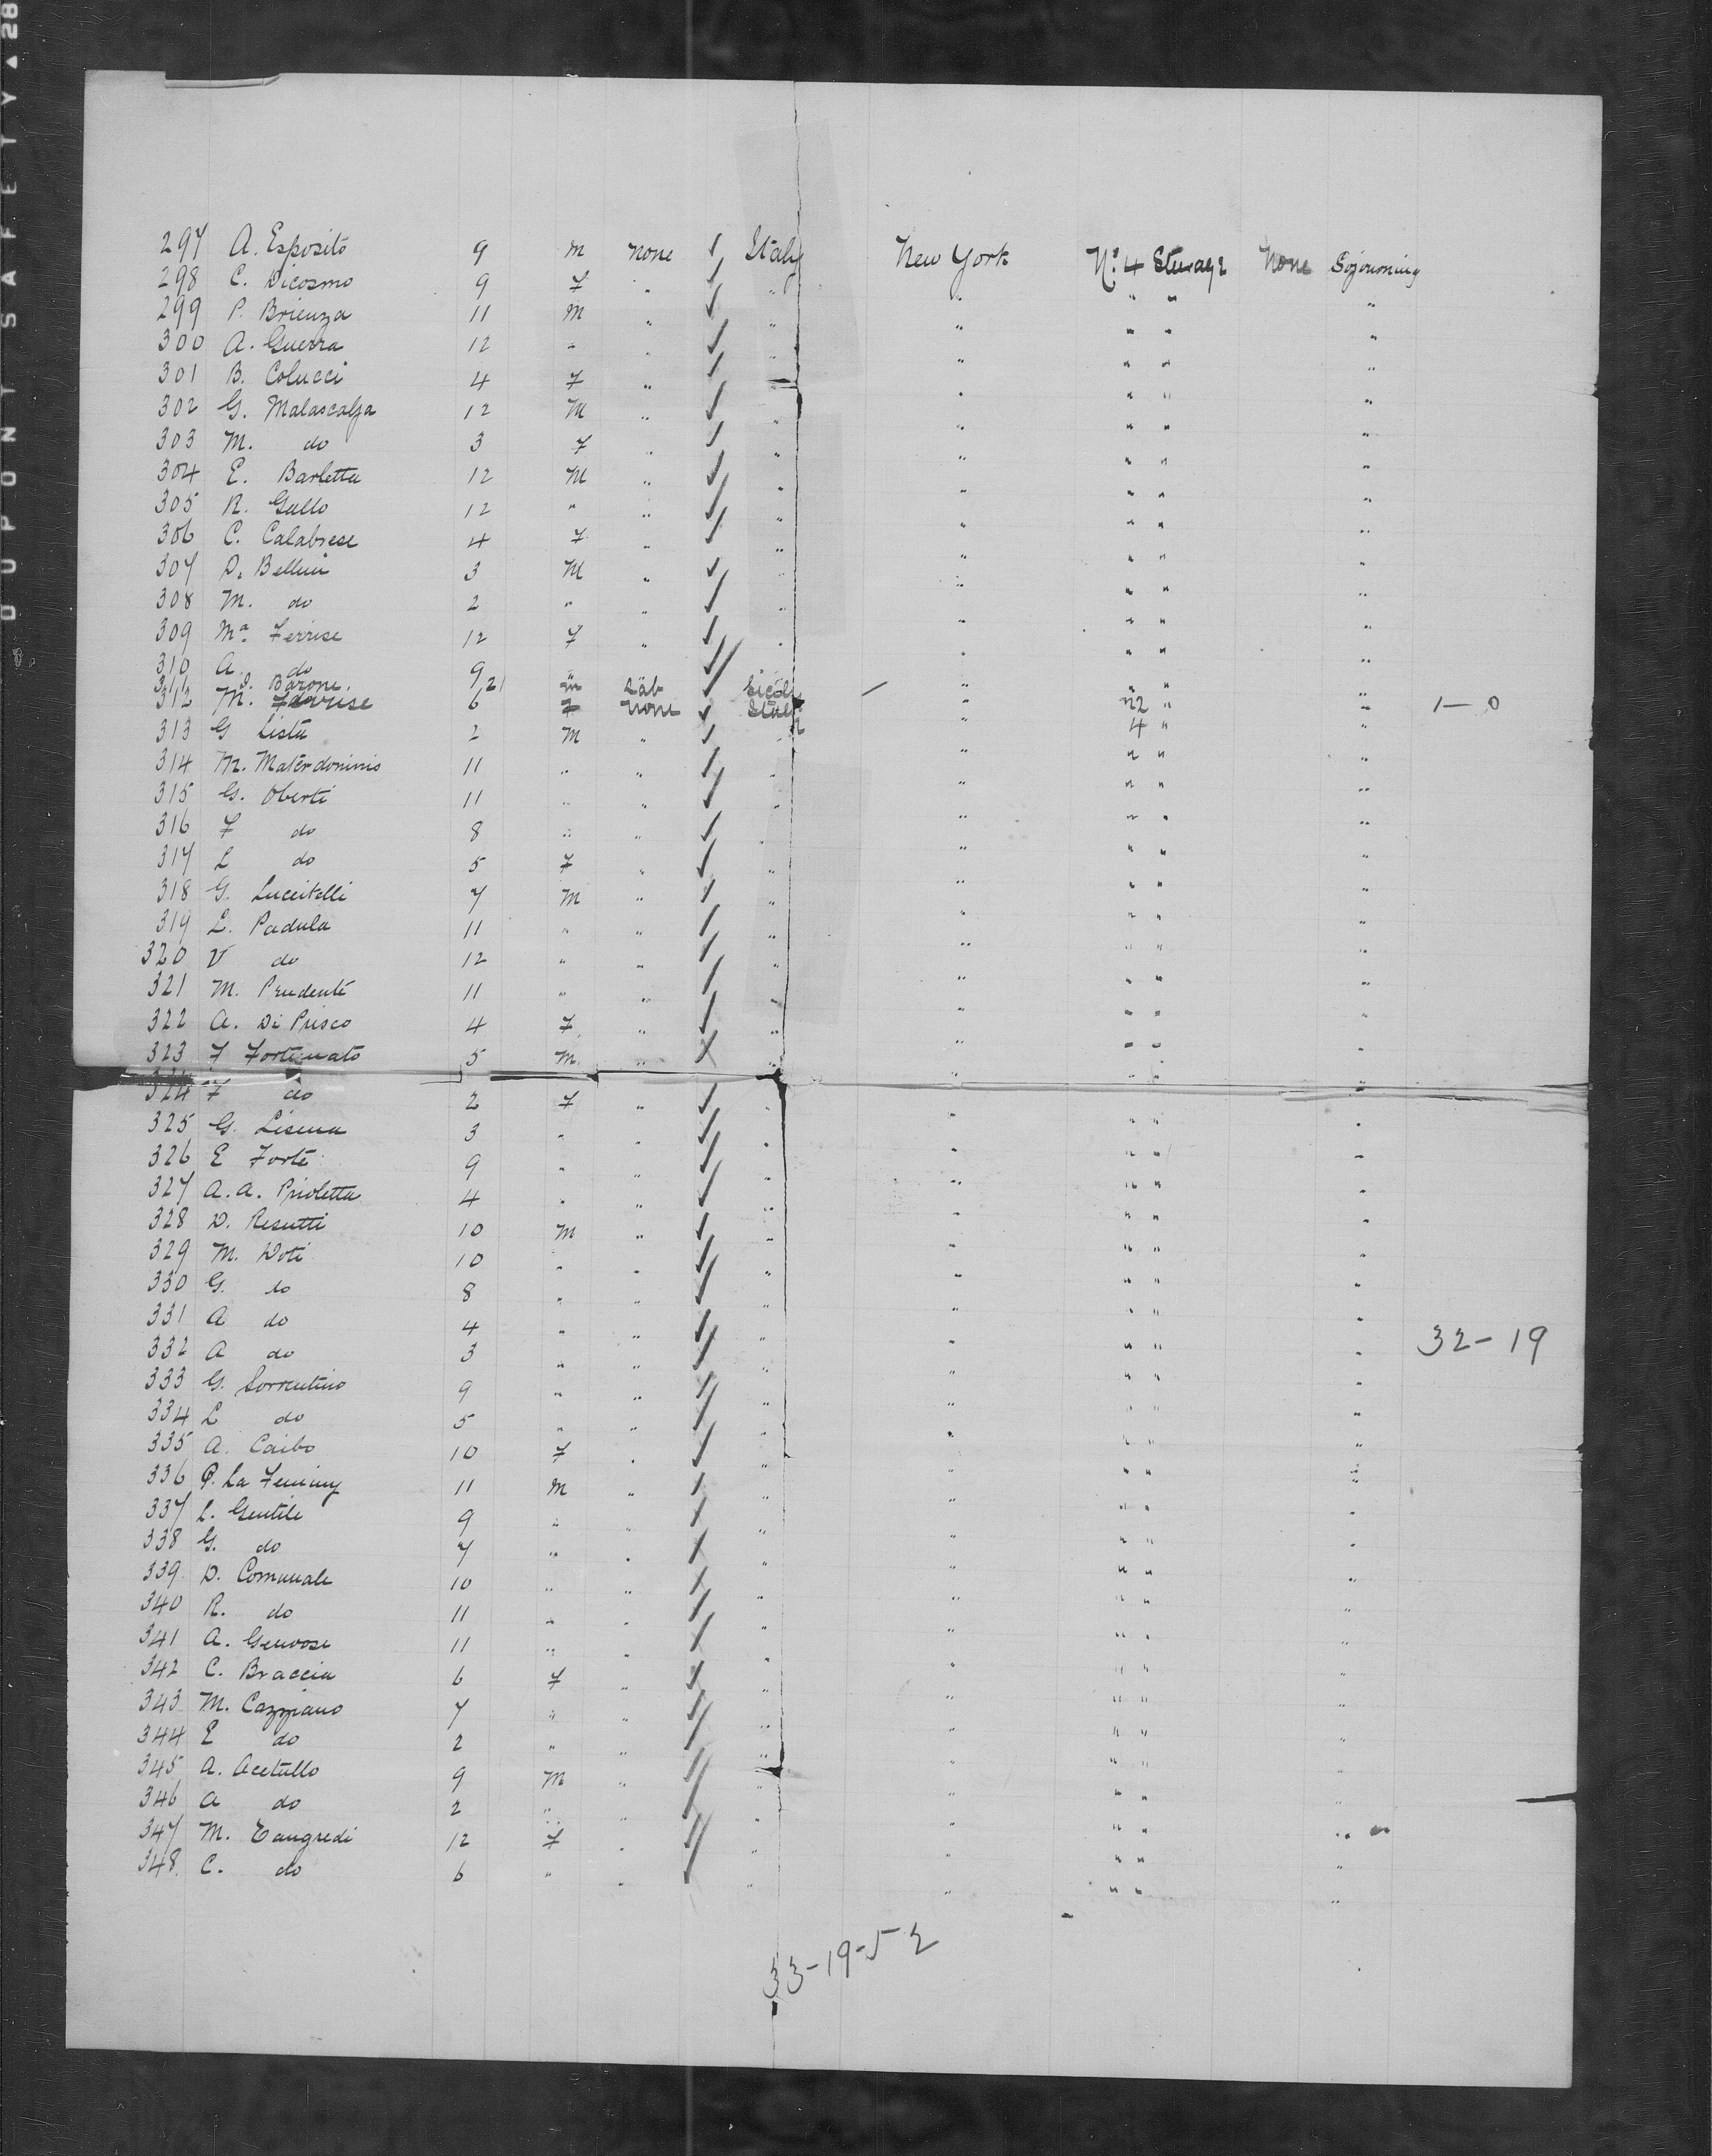 DUPONT SAFETY ▲ 28
297 A. Esposito 9 M none ✓ Italy New York Nº 4 Sterage None Sojourning
298 C. Dicosmo 9 F " ✓ " " " " "
299 P. Brienza 11 M " ✓ " " " " "
300 A. Guerra 12 " " ✓ " " " " "
301 B. Colucci 4 F " ✓ " " " " "
302 G. Malascalza 12 M " ✓ " " " " "
303 M. do 3 F " ✓ " " " " "
304 E. Barletta 12 M " ✓ " " " " "
305 R. Gallo 12 " " ✓ " " " " "
306 C. Calabrese 4 F " ✓ " " " " "
307 D. Bellini 3 M " ✓ " " " " "
308 M. do 2 " " ✓ " " " " "
309 Mª Ferrise 12 F " ✓ " " " " "
310 A do 9 " " ✓ " " " " "
311 Barone 21 M Lab ✓ Sicily " 22 " " 1-0
312 M. Ferrise 6 F none ✓ Italy " 4 " "
313 G Lista 2 M " ✓ " " " " "
314 M. Materdominis 11 " " ✓ " " " " "
315 G. Oberti 11 " " ✓ " " " " "
316 F do 8 " " ✓ " " " " "
317 L do 5 F " ✓ " " " " "
318 G. Luccitelli 7 M " ✓ " " " " "
319 L. Padula 11 " " ✓ " " " " "
320 V do 12 " " ✓ " " " " "
321 M. Prudente 11 " " ✓ " " " " "
322 A. Di Prisco 4 F " ✓ " " " " "
323 F Fortunato 5 M " ✓ " " " " "
324 F do 2 F " ✓ " " " " "
325 G. 3 " " ✓ " " " " "
326 E Forte 9 " " ✓ " " " " "
327 A. A. Prioletta 4 " " ✓ " " " " "
328 D. Resutti 10 M " ✓ " " " " "
329 M. Doti 10 " " ✓ " " " " "
330 G. do 8 " " ✓ " " " " "
331 A do 4 " " ✓ " " " " "
332 A do 3 " " ✓ " " " " " 32-19
333 G. Sorrentino 9 " " ✓ " " " " "
334 L do 5 " " ✓ " " " " "
335 A. Caibo 10 F " ✓ " " " " "
336 P. La 11 M " ✓ " " " " "
337 L. Gentile 9 " " ✓ " " " " "
338 G. do 7 " " ✓ " " " " "
339 D. Comunale 10 " " ✓ " " " " "
340 R. do 11 " " ✓ " " " " "
341 A. Genvose 11 " " ✓ " " " " "
342 C. Braccia 6 F " ✓ " " " " "
343 M. Cazziano 7 " " ✓ " " " " "
344 E do 2 " " ✓ " " " " "
345 A. Acetullo 9 M " ✓ " " " " "
346 A do 2 " " ✓ " " " " "
347 M. Tangredi 12 F " ✓ " " " " "
348 C. do 6 " " ✓ " " " " "
33-19-52